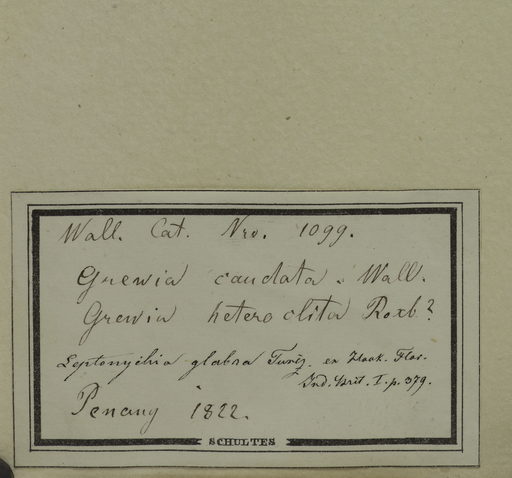 Wall. Cat. Nro. 1099.
Grewia caudata. Wall.
Grewia heteroclita Roxb?
Leptonychia glabra Turcz. ex Hook. Flor.
Ind. Brit. I. p. 379.
Penang 1822.
SCHULTES